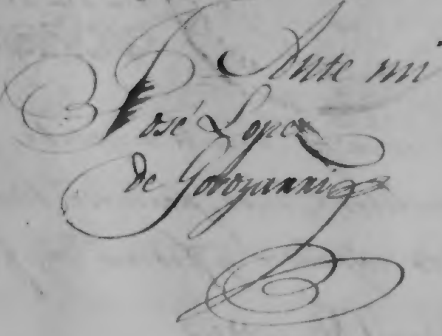 Ante mi
José Lopez
de Goroyarri